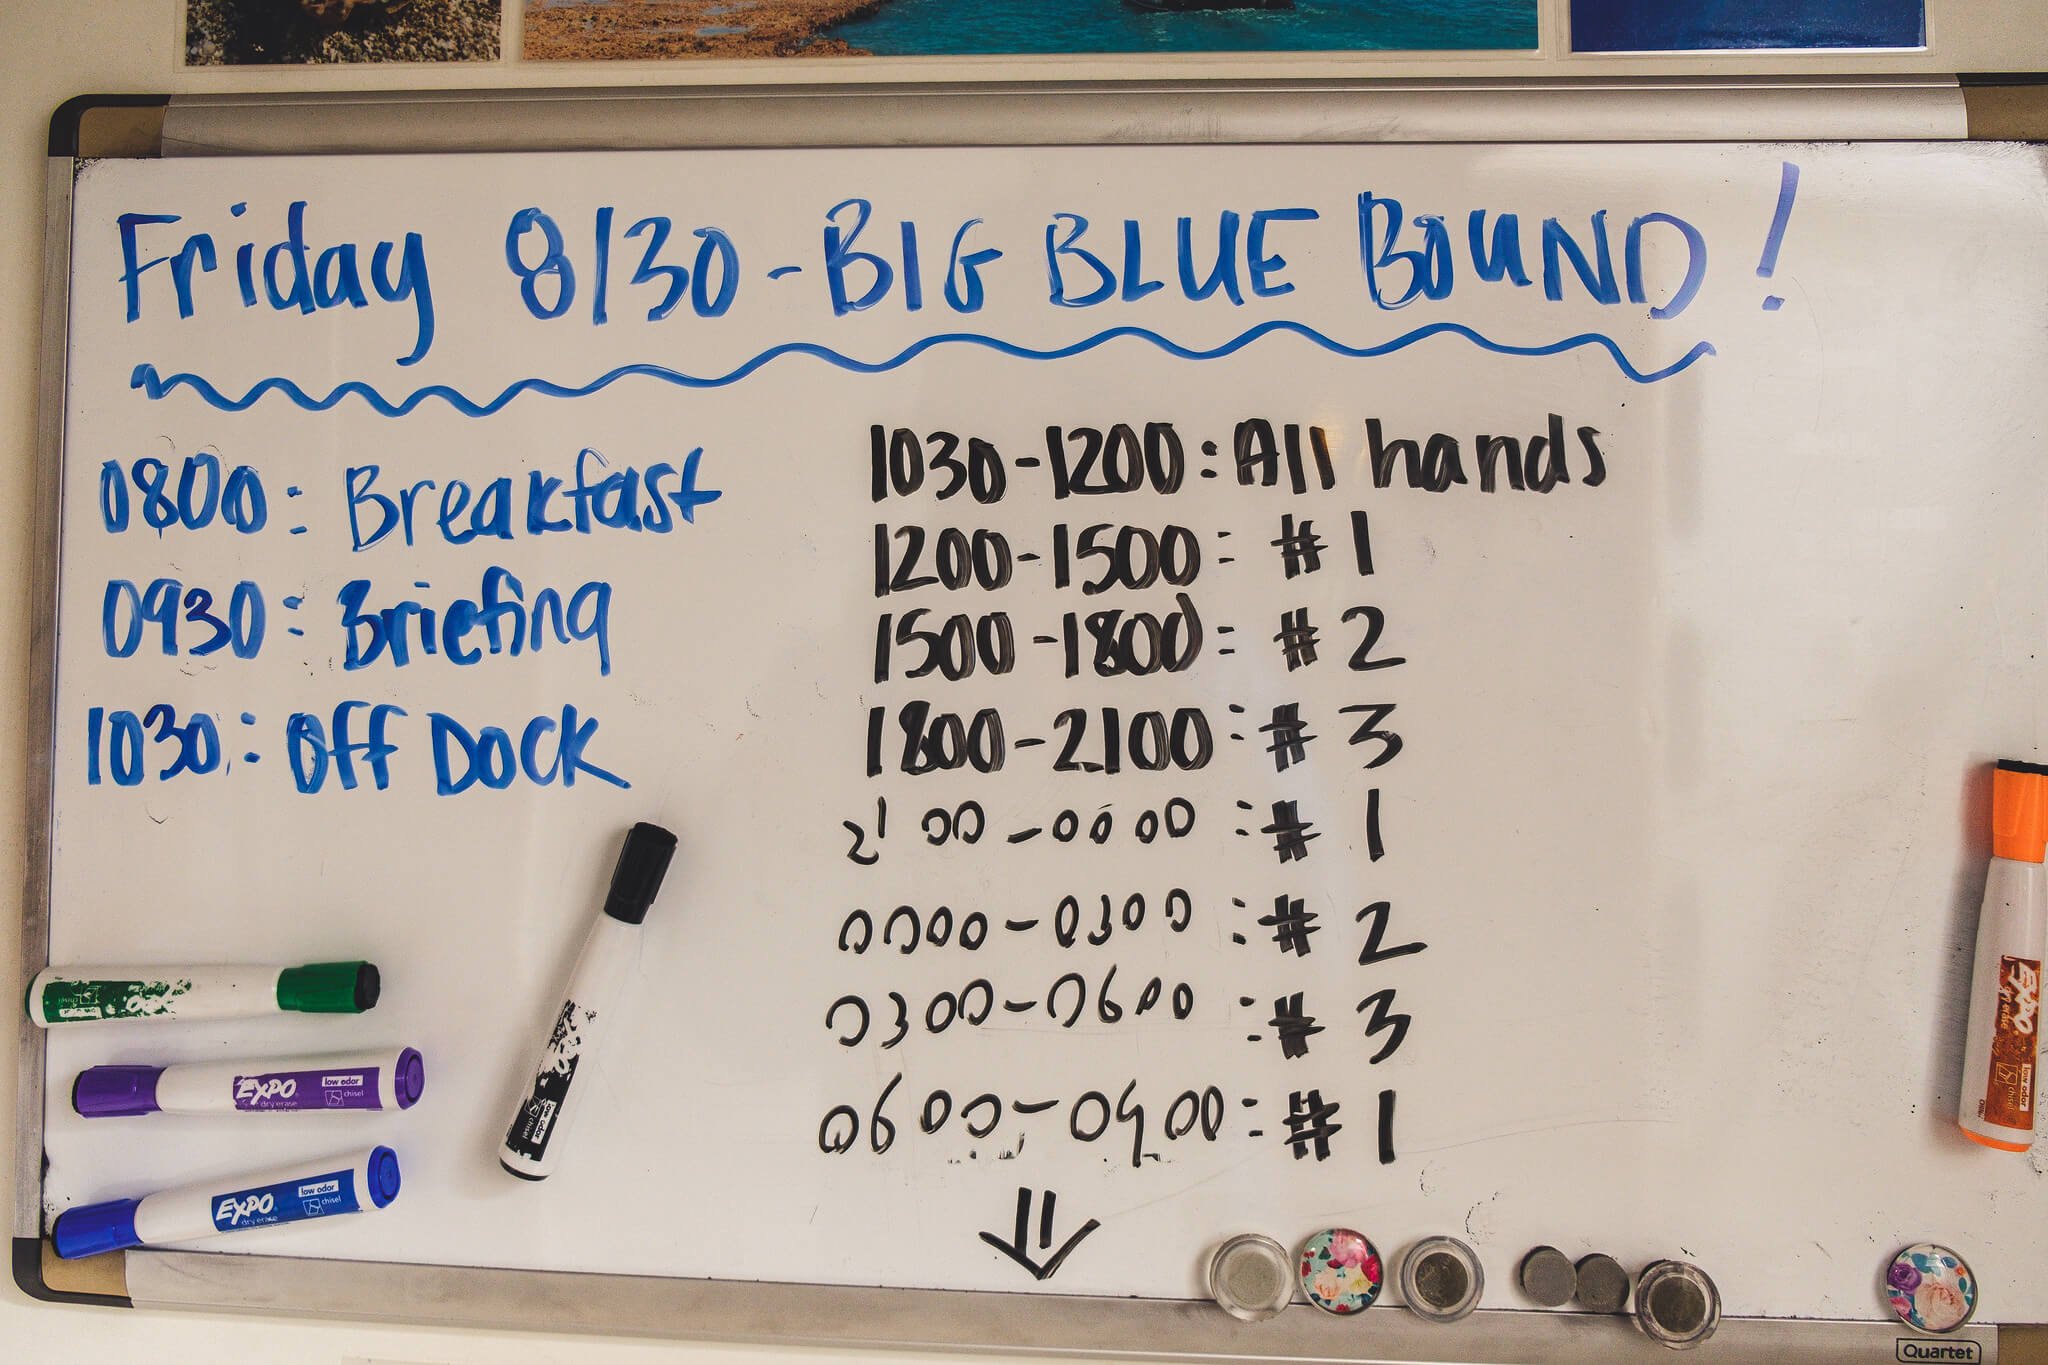 Friday 8/30 - BIG BLUE BOUND!
0800: Breakfast
0930: Briefing
1030: Off Dock
1030-1200: All hands
1200-1500: #1
1500-1800: #2
1800-2100: #3
2100-0000: #1
0000-0300: #2
0300-0600: #3
0600-0900: #1
EXPO low odor
dry erase chisel
EXPO low odor
dry erase chisel
low odor
chisel
EXPO
dry erase
low odor
chisel
Quartet